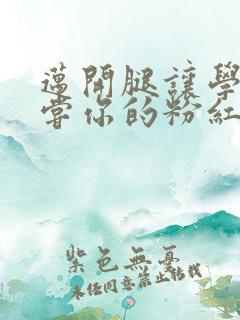 邁開腿讓學
嘗你的粉紅
紫色無憂
未经同意禁止转载